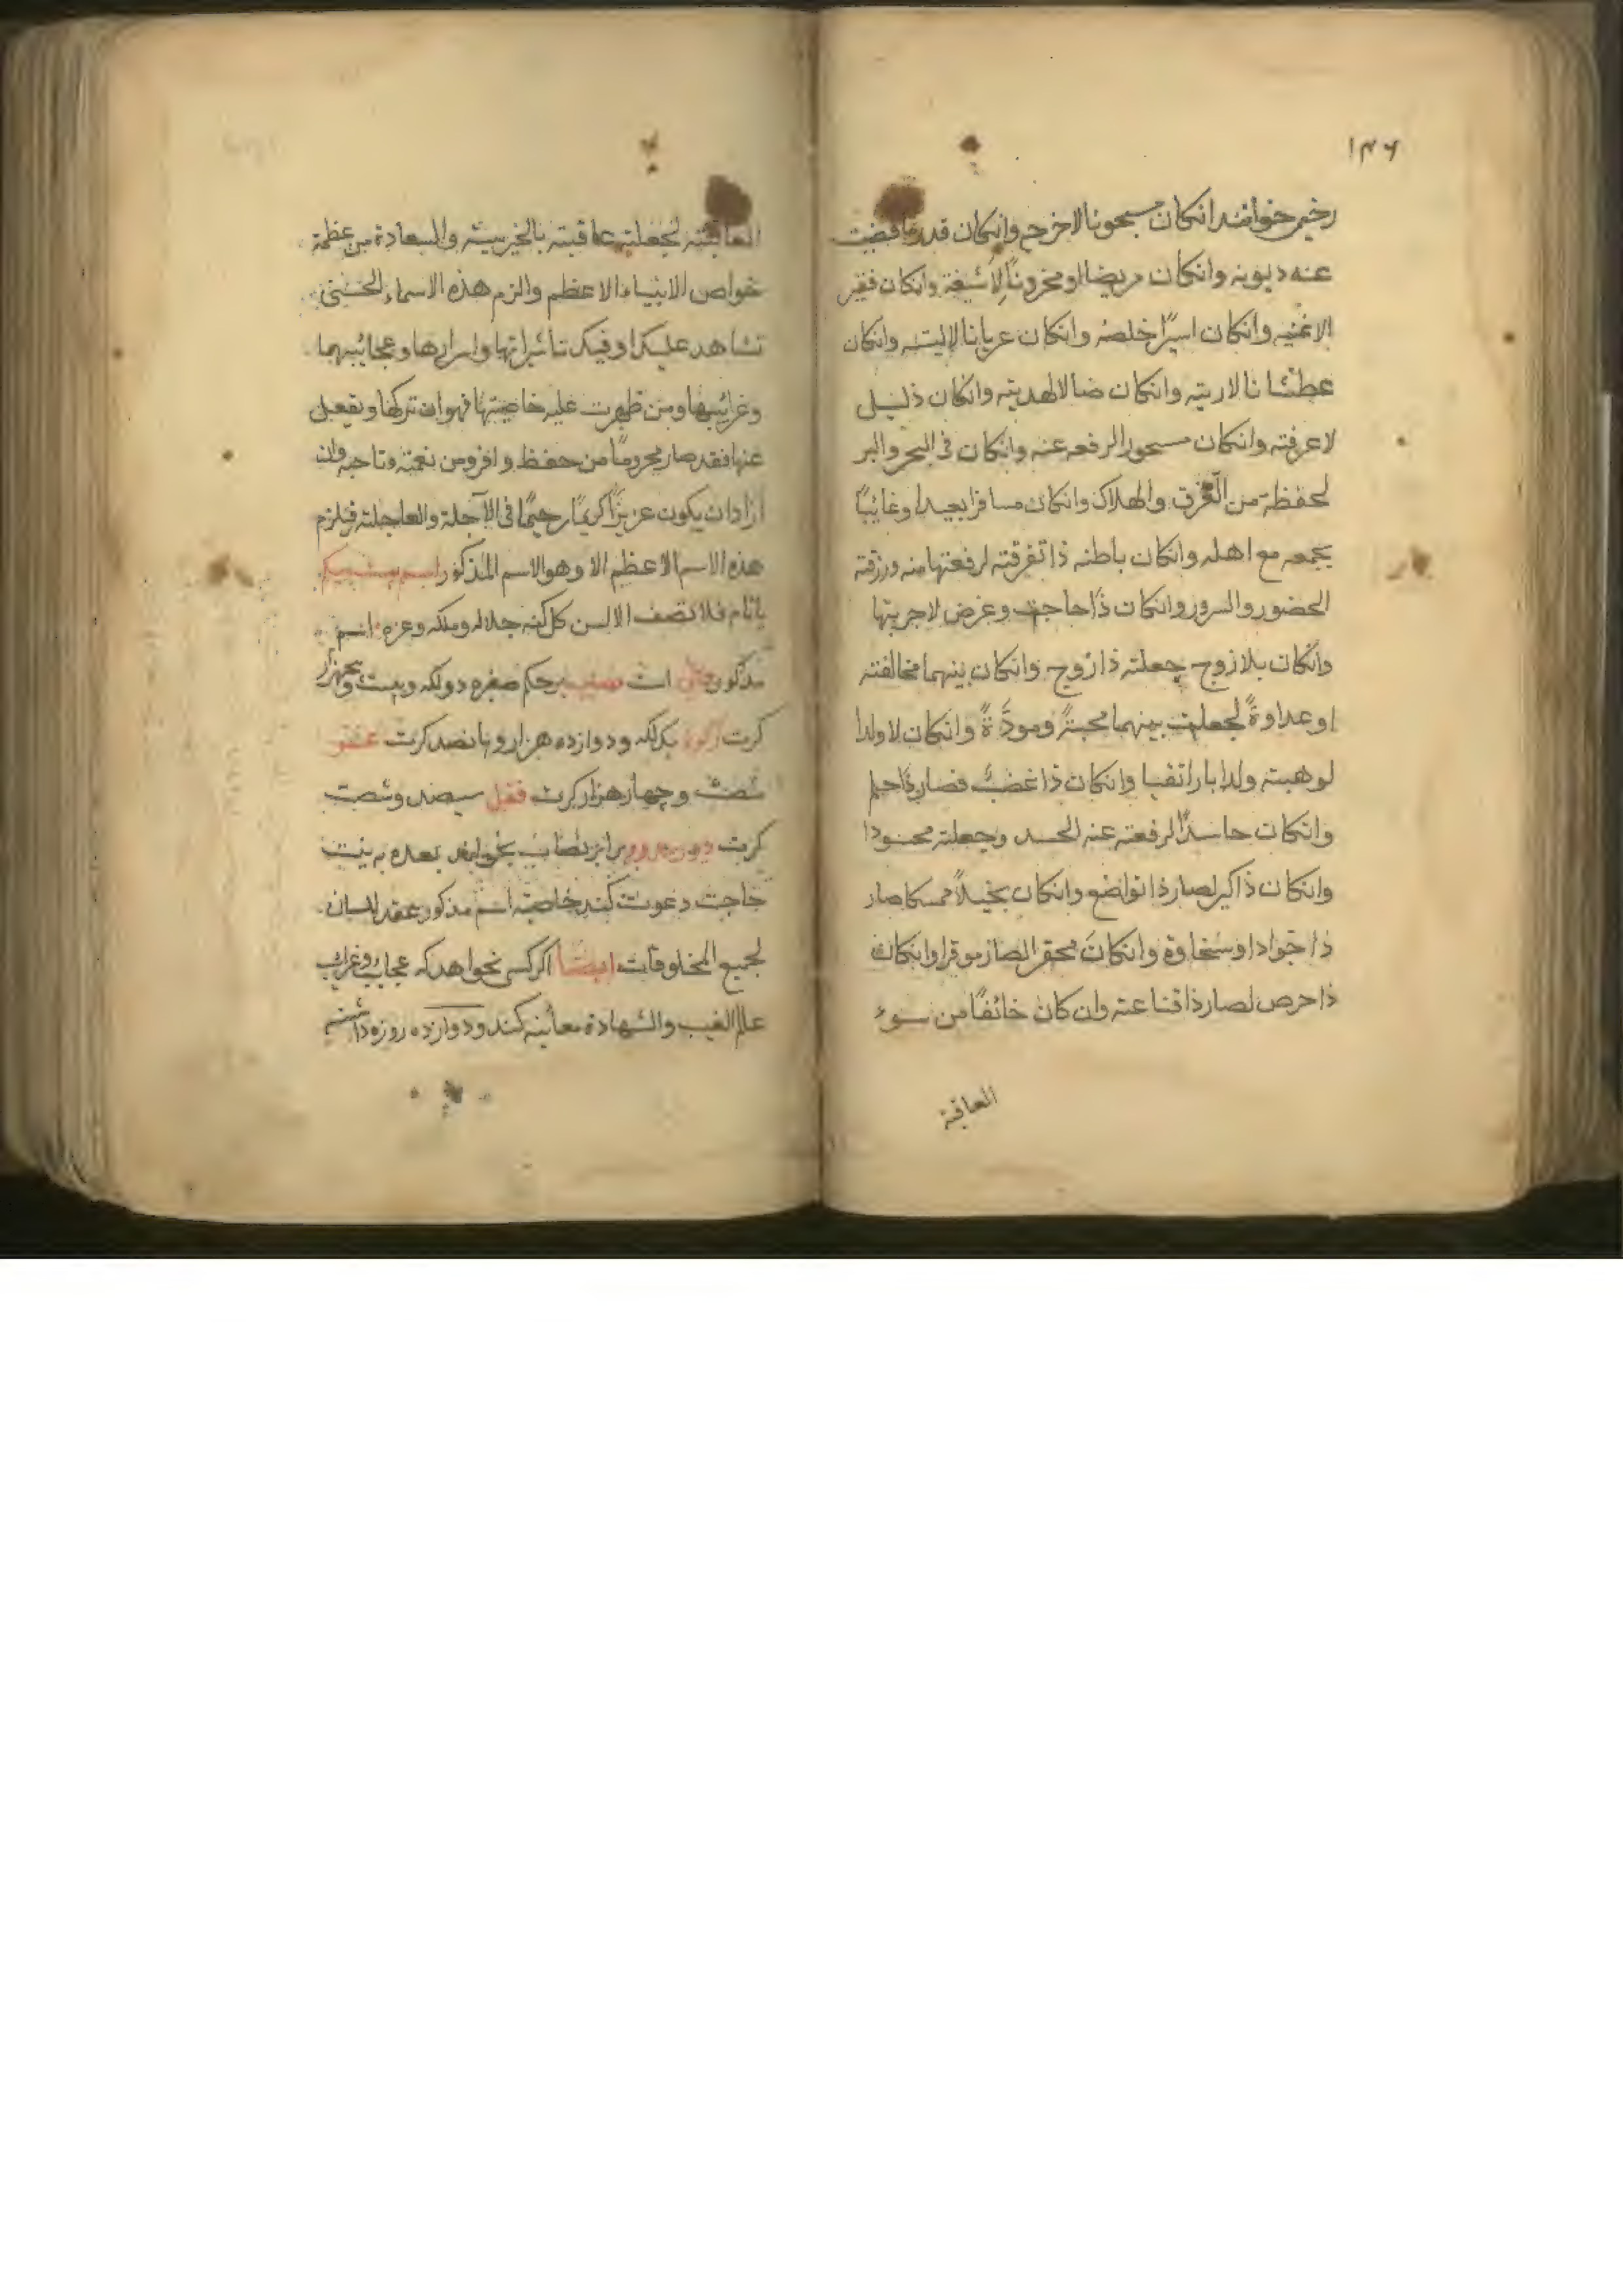 ۱۴۶
رخیم خوانند انکان مسجونا لاخرجه وانکان قد ما قضیت
عنه دیونه وانکان مریضا او محزونًا لاشفیة وانکان فقیر
الاغنیه وانکان اسیرًا خلصهٔ وانکان عریانا لالبسته وانکان
عطشانا لاریته وانکان ضالا لهدیته وانکان ذلیل
لاعرفته وانکان مسحورا لرفعه عنه وانکان فی البحر والبر
لحفظة من الغرق والهلاک وانکان مسافرا بعیدا وغائبًا
یجمعه مع اهله وانکان باطنه ذا تفرقته لرفعتها منه ورزقته
الحضور والسرور وانکان ذا حاجت وغرض لاجریتها
وانکان بلا زوج جعلته ذا زوج وانکان بینهما مخالفته
او عداوةً لجعلت بینهما محبتةً ومودَّةً وانکان لا ولدا
لوهبته ولدا بارا تقیا وانکان ذا غضب فصار ذا حلم
وانکان حاسدًا لرفعته عنه الحسد وجعلته محسودا
وانکان ذا کبر لصار ذا تواضع وانکان بخیلاً ممسکا صار
ذا جوادا وسخاوة وانکان محقر الصار موقرا وانکان
ذا حرص لصار ذا قناعته وان کان خائفًا من سوء
العاقبة
العاقبته لجعلته عاقبته بالخیریته والسعادة من عظمة
خواص الانبیاء الاعظم والزم هذه الاسماء الحسنی
تشاهد علیک او فیک تاثیراتها واسرارها وعجائبهما
وغرائبها ومن ظهرت علیه خاصیتها فهو ان ترکها ویفعل
عنها فقد صار محرومًا من حفظ وافر ومن نعمته وتاجه وان
اراد ان یکون عزیزًا کریمًا رحیمًا فی الآجلة والعاجلته فیلزم
هذه الاسم الاعظم الا وهو الاسم المذکور اسم
یا تام فلا تصف الالسن کل کنه جلاله وملکه وعزه اسم
مذکور است برحکم صغره دولکه وبیست وپنجهزار
کرت زکوة یکلکه ودوازده هزار وپانصد کرت عشر
شصت وچهار هزار کرت قفل سیصد وشصت
کرت دور مدور برابر نصاب بخواند بعده به نیت
حاجت دعوت کند خاصیته اسم مذکور عقد لسان
لجمیع المخلوقات ایضًا اکر کسی بخواهد که عجایب وغرایب
عالم الغیب والشهادة معاینه کند ودوازده روزه داشتم